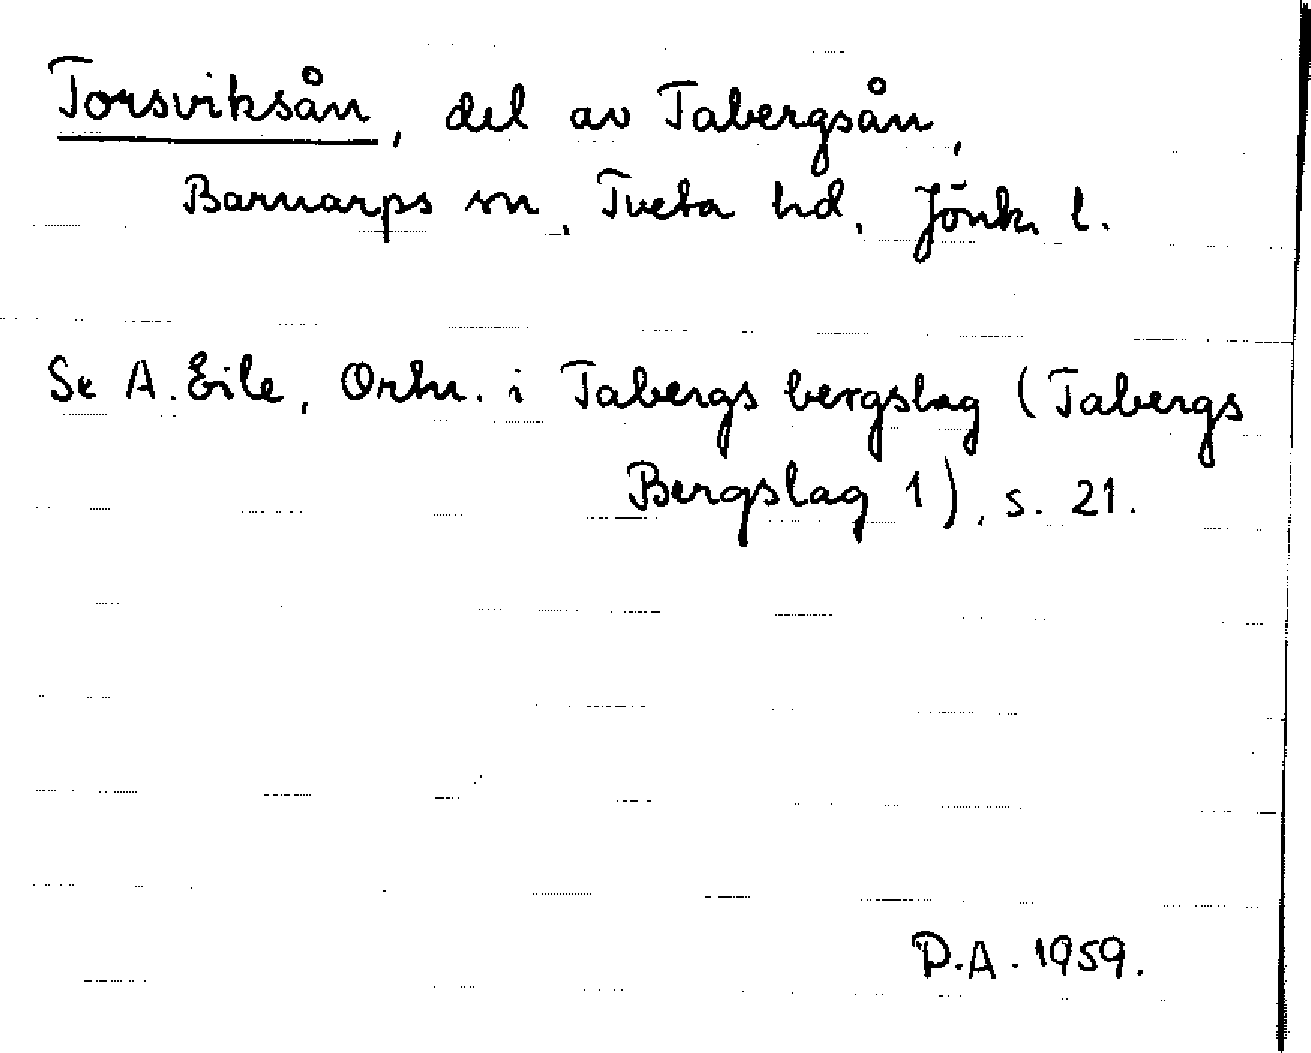 Torsviksån, del av Tabergsån,
Barnarps sn, Tveta hd, Jönk. l.
Se A. Eile, Ortn. i Tabergs bergslag (Tabergs
Bergslag 1), s. 21.
D.A. 1959.